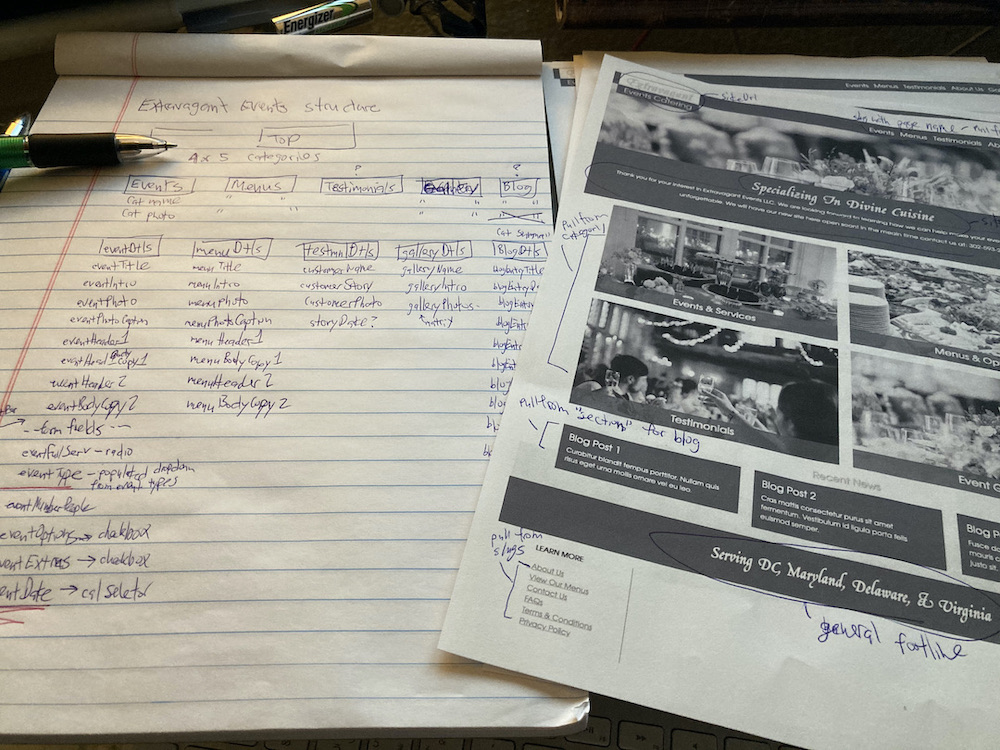 Energizer
Extravagant Events structure
Top
4 x 5 categories
? ?
Events Menus Testimonials Blog
Cat name " " " "
Cat photo " " " "
eventDtls menuDtls testmnlDtls galleryDtls BlogDtls
eventTitle menuTitle customerName galleryName blogEntryTitle
eventIntro menuIntro customerStory galleryIntro
eventPhoto menuPhoto customerPhoto galleryPhotos
eventPhotoCaption menuPhotoCaption storyDate? matrix
eventHeader1 menuHeader1
menuBodyCopy1
eventHeader2 menuHeader2
eventBodyCopy2 menuBodyCopy2
--form fields--
eventFulServ - radio
eventType - populated dropdown
from event types
eventNumberPeople
eventOptions → checkbox
eventExtras → checkbox
entDate → cal selector
Events Catering
Events Menus Testimonials About Us
Events Menus Testimonials Ab
Specializing In Divine Cuisine
Thank you for your interest in Extravagant Events LLC. We are looking forward to learning how we can help make your eve
unforgettable. We will have our new site here open soon! In the mean time contact us at: 302-593
pull from
category
Events & Services
Menus & Op
Testimonials
Event G
pull from "section" for blog
Recent News
Blog Post 1
Curabitur blandit tempus porttitor. Nullam quis
risus eget urna mollis ornare vel eu leo.
Blog Post 2
Cras mattis consectetur purus sit amet
fermentum. Vestibulum id ligula porta felis
euismod semper.
Blog P
Fusce do
mauris c
justo sit.
Serving DC, Maryland, Delaware, & Virginia
general footline
pull from
slugs
LEARN MORE
About Us
View Our Menus
Contact Us
FAQs
Terms & Conditions
Privacy Policy